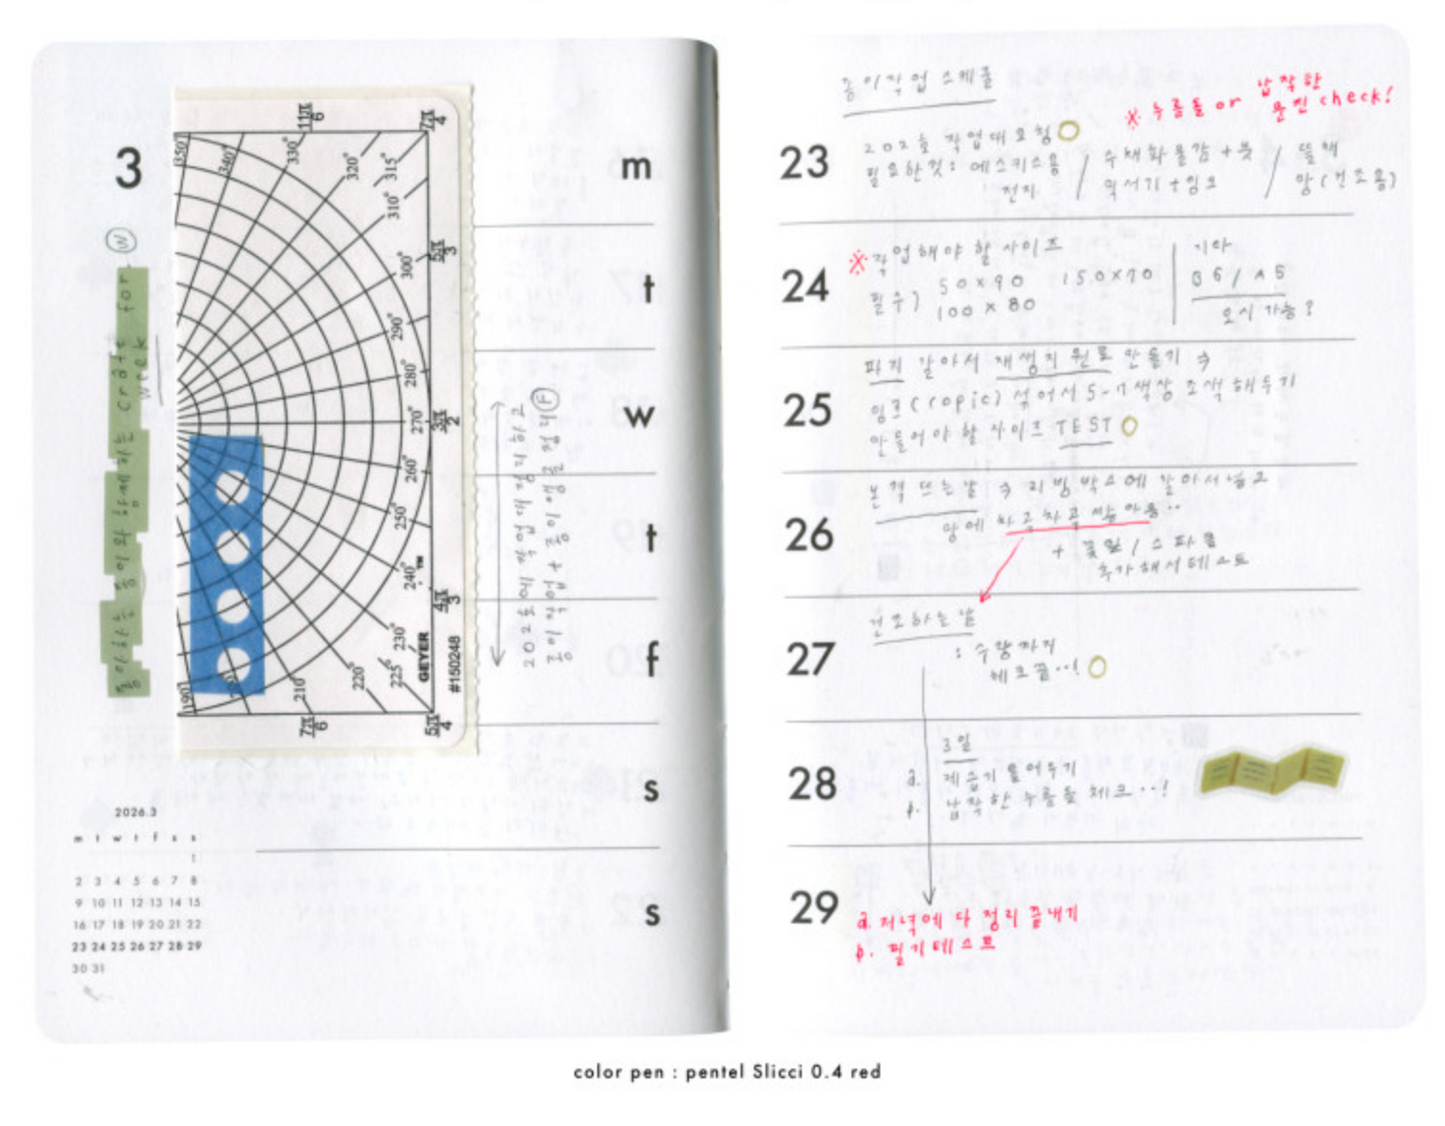 3
좋아하는 종이와 함께하는 craft for W
week
350°
340°
330°
11π/6
320°
315°
7π/4
310°
300°
5π/3
290°
280°
270°
3π/2
260°
250°
240°
4π/3
™
230°
225
5π/4
220°
210°
7π/6
190°
GEYER
#150248
202호에 작업대 정리하고
종이작업 + 책
F
m
t
w
t
f
s
s
2026.3
m t w t f s s
1
2 3 4 5 6 7 8
9 10 11 12 13 14 15
16 17 18 19 20 21 22
23 24 25 26 27 28 29
30 31
종이작업 스케줄
※ 누름돌 or 납작한
문진 check!
23
202호 작업대 요청
필요한것: 에스키스용 / 수채화물감 + 붓 / 뜰채
전지 믹서기 + 잉크 망 (건조용)
24
※ 작업해야 할 사이즈
필수) 50×90 150×70
100×80
기타
B6 / A5
오시 가능?
25
파지 갈아서 재생지 원료 만들기
잉크 (copic) 섞어서 5-7색상 조색 해두기
만들어야 할 사이즈 TEST
26
본격 뜨는날 리빙박스에 담아서 넣고
망에 차곡차곡 쌓아둠..
+ 꽃잎 / 스파클
추가해서 테스트
27
건조하는 날
: 수량까지
체크 끝..!
28
3일
a. 제습기 틀어두기
b. 납작한 누름돌 체크..!
29
a. 저녁에 다 정리 끝내기
b. 필기테스트
color pen : pentel Slicci 0.4 red